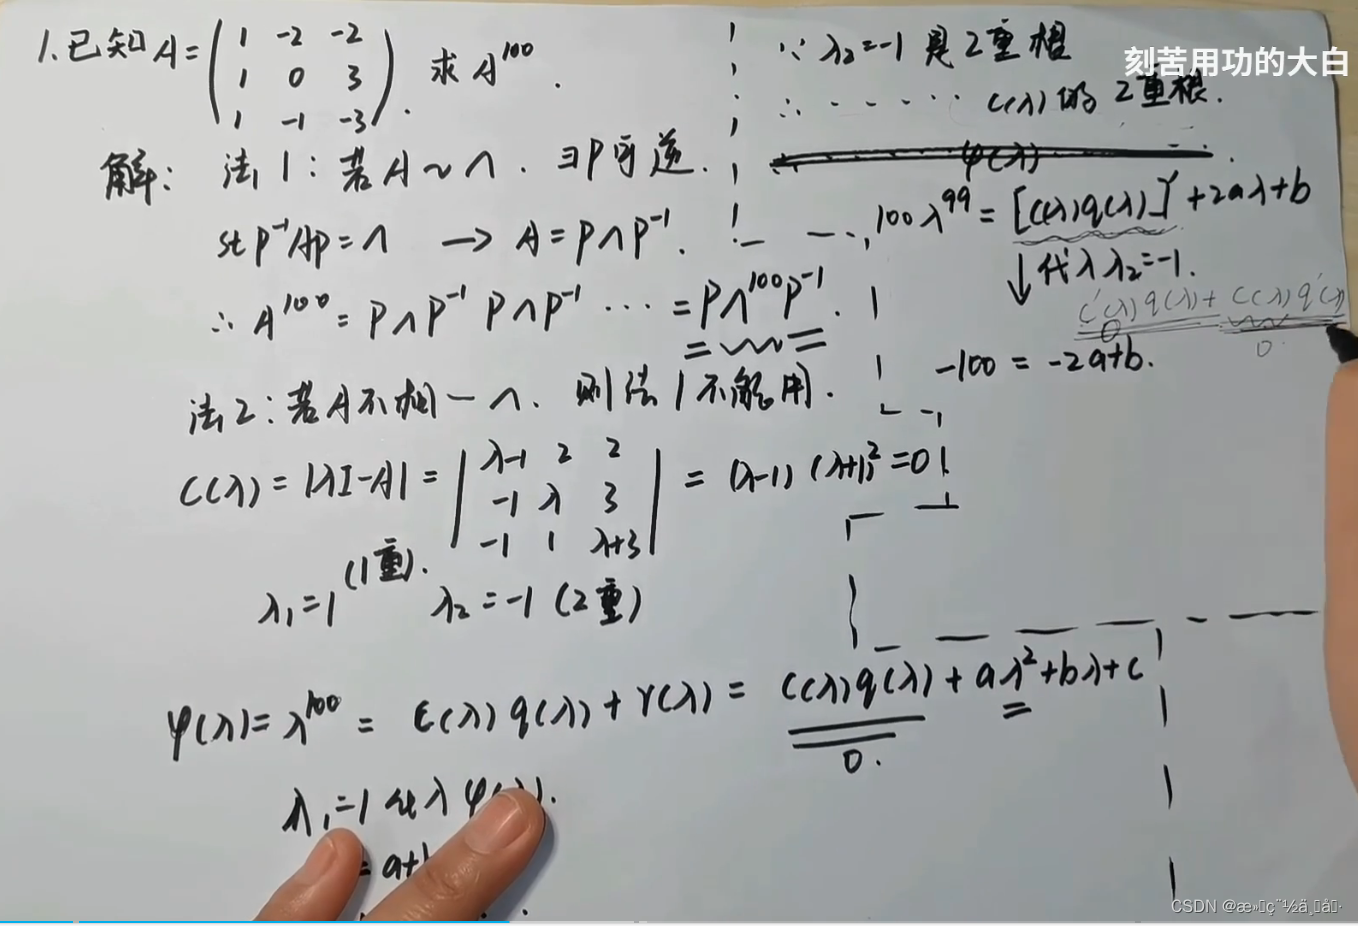 1.已知A=(1 -2 -2
1 0 3
1 -1 -3). 求A^100.
解: 法1:若A~Λ. ∃P可逆.
st P^-1AP=Λ → A=PΛP^-1.
∴ A^100 = PΛP^-1 PΛP^-1 ··· = PΛ^100P^-1.
法2:若A不相~Λ. 则法1不能用.
C(λ)=|λI-A|= |λ-1 2 2
-1 λ 3
-1 1 λ+3| = (λ-1)(λ+1)^2=0
λ1=1 (1重). λ2=-1 (2重)
φ(λ)=λ^100 = C(λ)q(λ)+r(λ) = C(λ)q(λ)+aλ^2+bλ+c
0.
λ1=1 代入
= a+
∵ λ2=-1 是2重根
∴ ······ C(λ)的2重根.
100λ^99 = [C(λ)q(λ)]'+2aλ+b
↓代入λ2=-1.
C'(λ)q(λ)+C(λ)q'(λ)
0 0
-100 = -2a+b.
刻苦用功的大白
CSDN